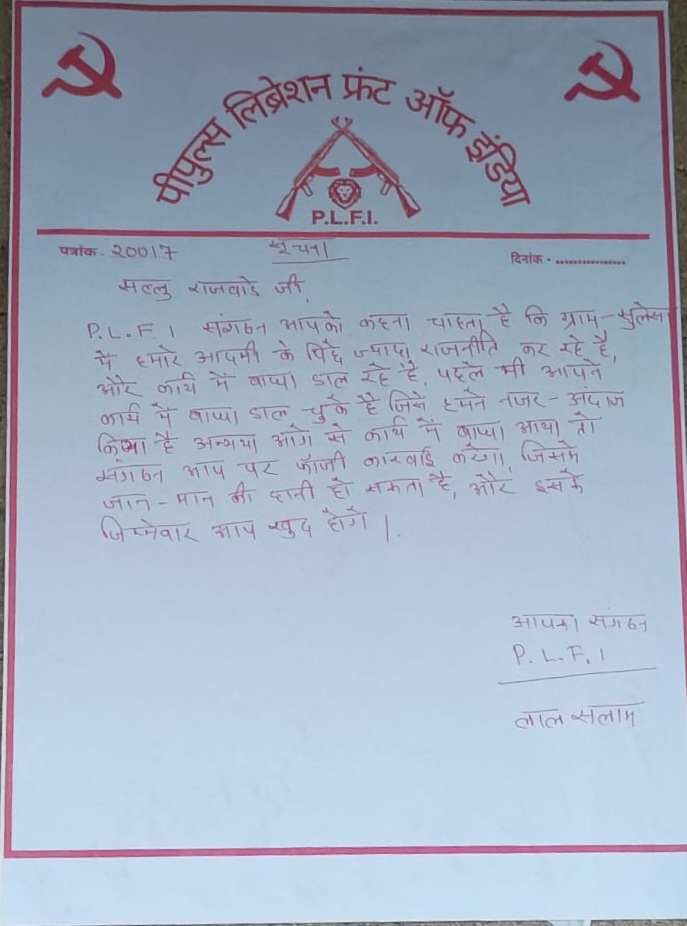 पीपुल्स लिब्रेशन फ्रंट ऑफ इंडिया
P.L.F.I.
पत्रांक - 20017 सूचना दिनांक - ................
सल्लु राजवाडे जी,
P.L.F.I संगठन आपको कहना चाहता है कि ग्राम - सुलेसा
में हमारे आदमी के पिछे ज्यादा राजनीति कर रहे है,
और कार्य में बाधा डाल रहे है, पहले भी आपने
कार्य में बाधा डाल चुके है जिसे हमने नजर - अदाज
किया है अन्यथा आगे से कार्य में बाधा आया तो
संगठन आप पर फौजी कारवाई करेगा, जिसमे
जान - मान की हानी हो सकता है, और इसके
जिम्मेवार आप खुद होगे |.
आपका संगठन
P. L. F. I
लाल सलाम